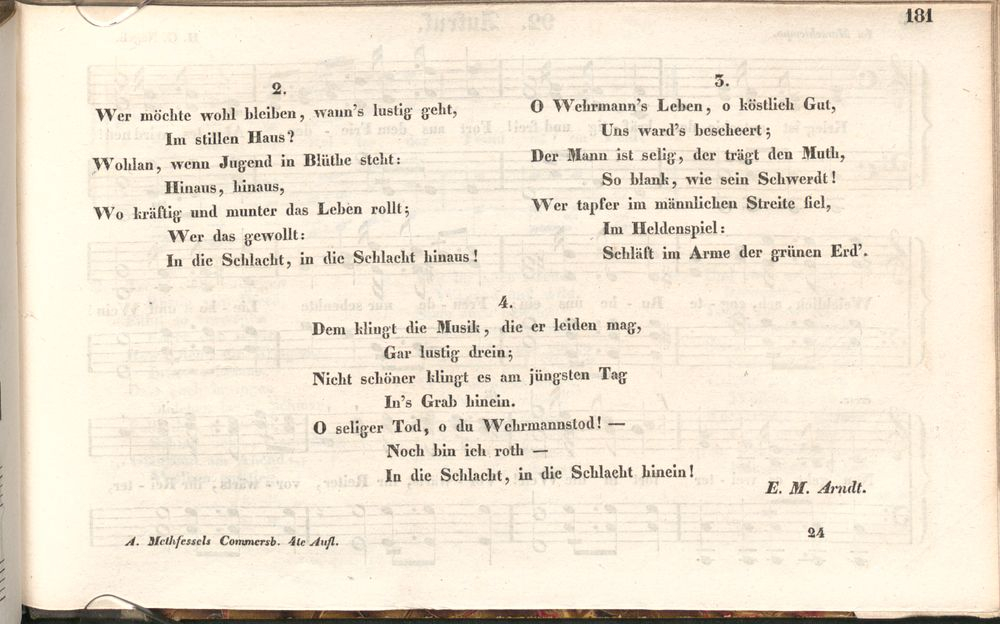 181
2.
Wer möchte wohl bleiben, wann's lustig geht,
Im stillen Haus?
Wohlan, wenn Jugend in Blüthe steht:
Hinaus, hinaus,
Wo kräftig und munter das Leben rollt;
Wer das gewollt:
In die Schlacht, in die Schlacht hinaus!
3.
O Wehrmann's Leben, o köstlich Gut,
Uns ward's bescheert;
Der Mann ist selig, der trägt den Muth,
So blank, wie sein Schwerdt!
Wer tapfer im männlichen Streite fiel,
Im Heldenspiel:
Schläft im Arme der grünen Erd'.
4.
Dem klingt die Musik, die er leiden mag,
Gar lustig drein;
Nicht schöner klingt es am jüngsten Tag
In's Grab hinein.
O seliger Tod, o du Wehrmannstod! —
Noch bin ich roth —
In die Schlacht, in die Schlacht hinein!
E. M. Arndt.
A. Methfessels Commersb. 4te Aufl.
24